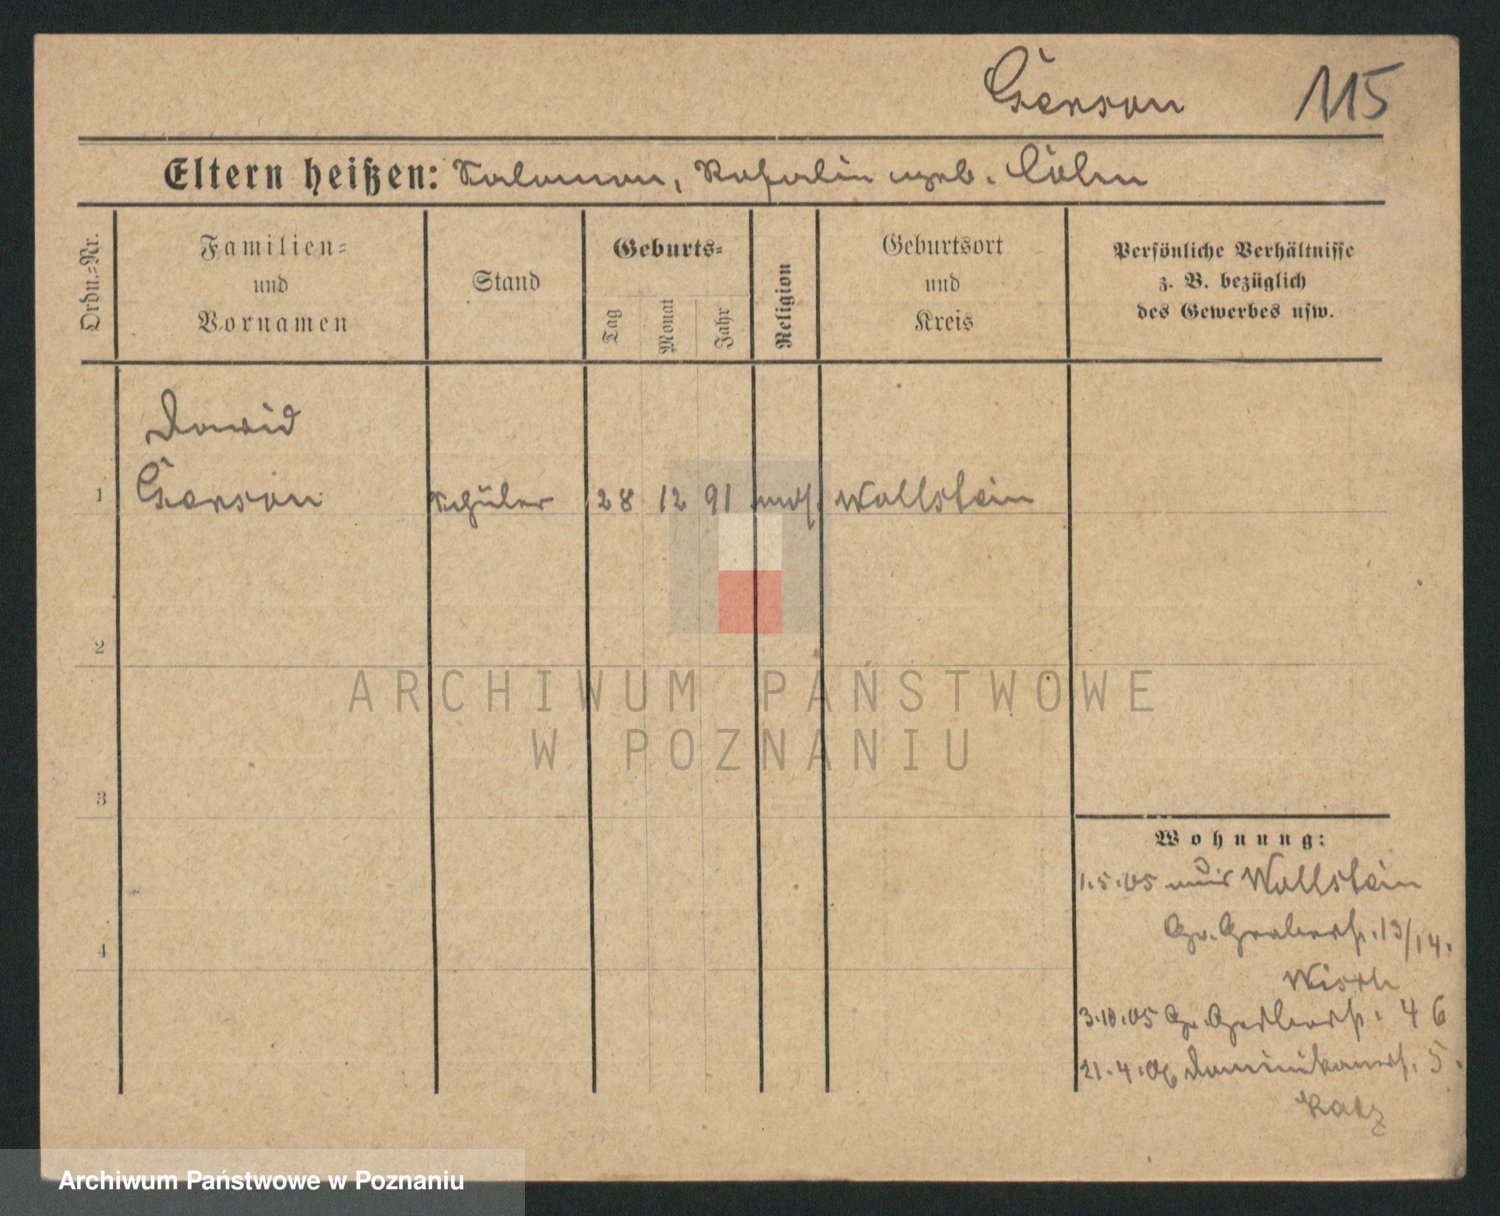 Gerson 115
Eltern heißen: Salomon, Rosalin geb. Cohn
Ordn.-Nr.
Familien-
und
Vornamen
Stand
Geburts-
Tag
Monat
Jahr
Religion
Geburtsort
und
Kreis
Persönliche Verhältnisse
z. B. bezüglich
des Gewerbes usw.
David
1 Gerson Schüler 28 12 91 mos. Wollstein
2
ARCHIWUM PAŃSTWOWE
W POZNANIU
3
Wohnung:
1.5.05 aus Wollstein
Gr. Gerberstr. 13/14.
4
Wirth
3.10.05 Gr. Gerberstr. 46
21.4.06 Dominikanerstr. 5.
Katz
Archiwum Państwowe w Poznaniu